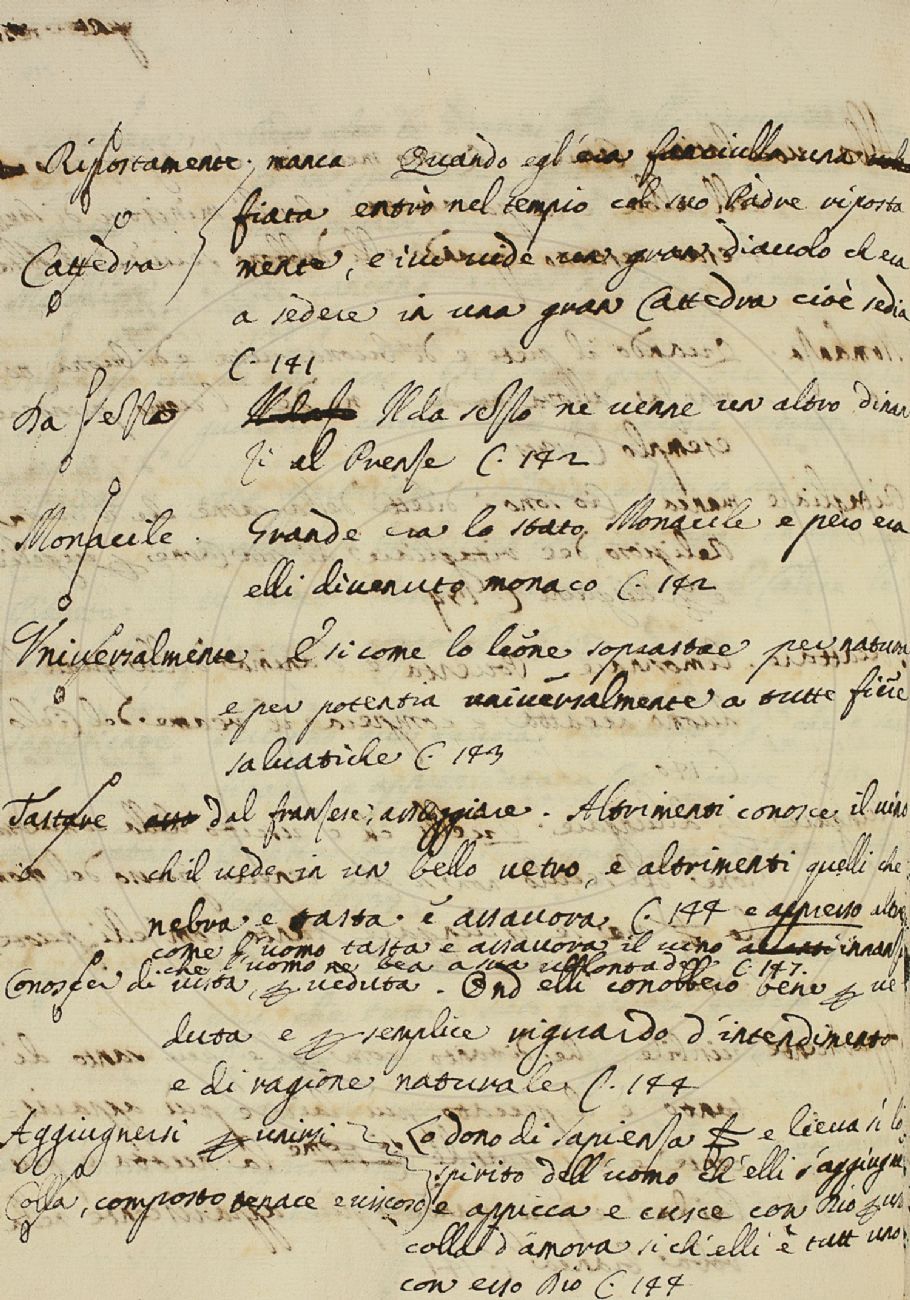 Rispostamente, manca Quando egl'era fanciullo una
fiata entrò nel tempio col suo Padre riposta
Cattedra mente, e ivi vide un gran diavolo ch era
a sedere in una gran Cattedra cioè sedia
C. 141
Da sesso Il da sesso ne venne un altro dinan
zi al Prense C. 142
Monacile. Grande era lo stato Monacile e pero era
elli divenuto monaco C. 142
Universalmente E si come lo leone soprastae per natura
e per potentia universalmente a tutte fiere
salvatiche C. 143
Tastare dal franzese, assaggiare. Altrimenti conosce il vino
ch il vede in un bello vetro, e altrimenti quelli che
nebra e tasta e assavora C. 144 e appresso altre
come l'uomo tasta e assavora il vino innanzi
che l'uomo ne bea a sua volontade C. 147.
Conoscer di vista, p veduta. Ond elli conobbero bene p ve
duta e p semplice riguardo d'intendimento
e di ragione naturale C. 144
Aggiugnersi p unirsi Lo dono di sapienza e lieva sì lo
spirito dell'uomo ch'elli s'aggiugn
Colla, composto tenace e viscoso e appicca e cusce con Dio p una
colla d'amora si ch'elli è tutt uno
con esso Dio C. 144